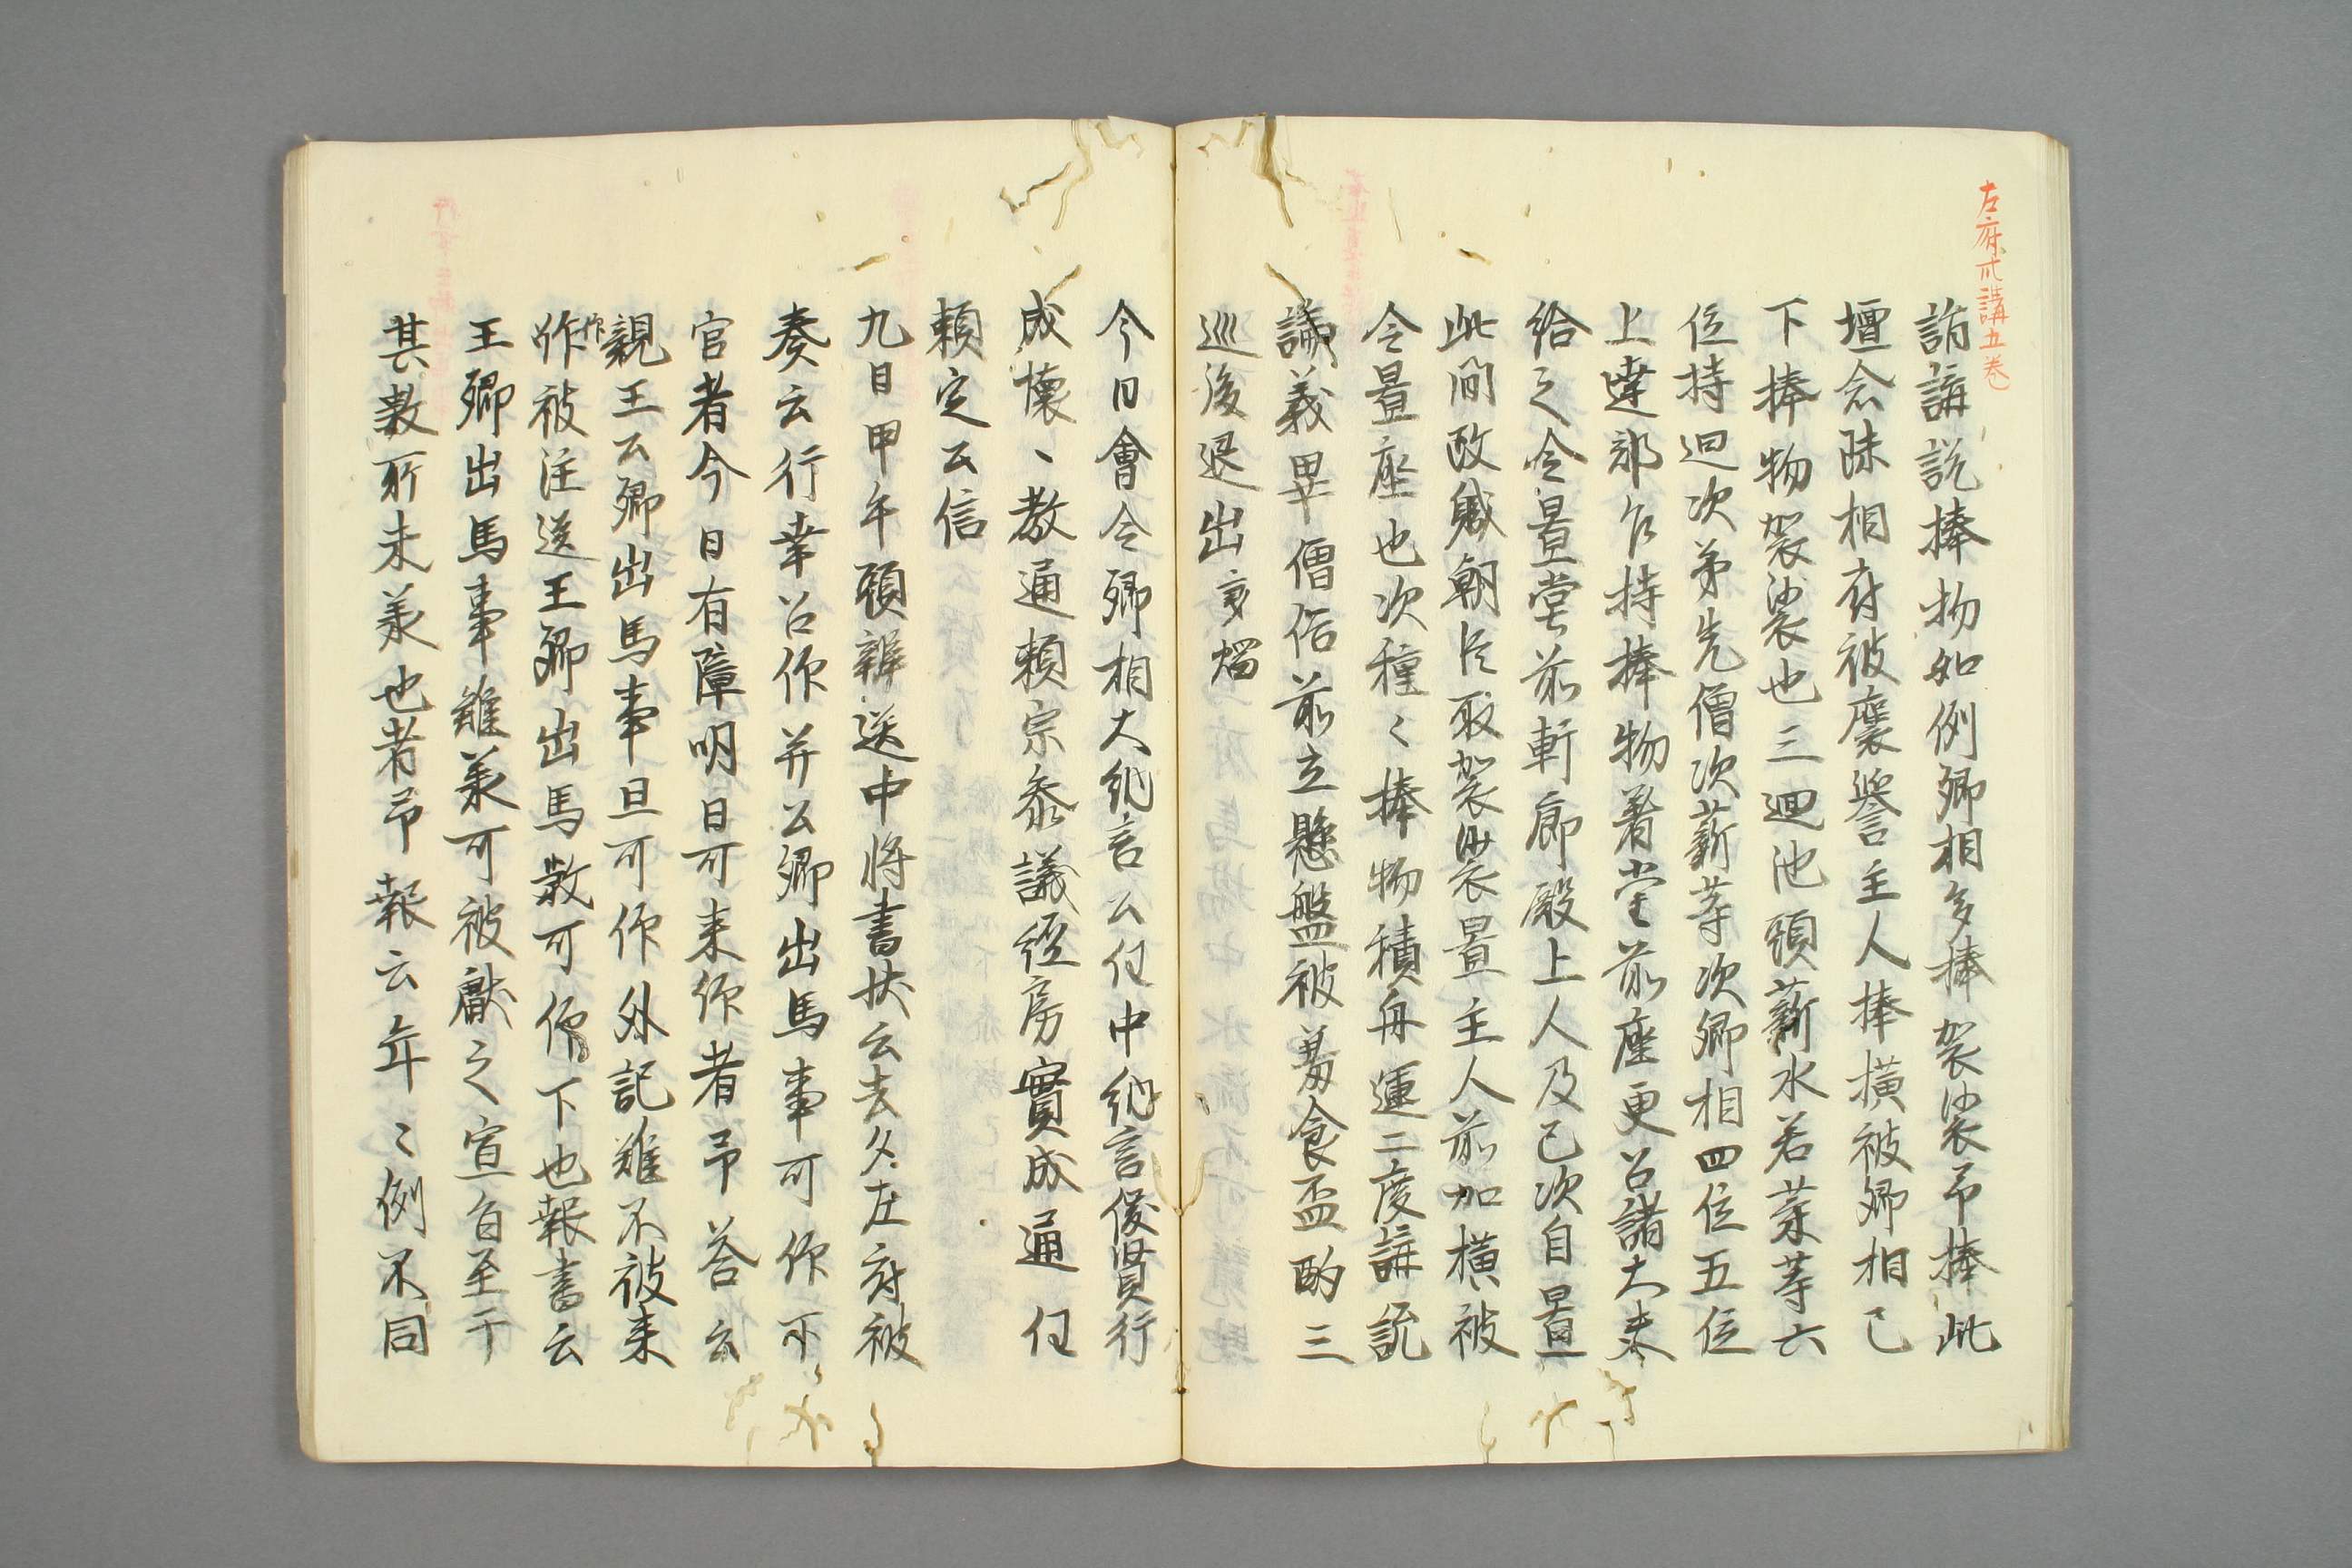 左府卅講五巻
詣講説捧物如例卿相多捧袈裟予捧此
壇念珠相府被褒誉主人捧横被卿相已
下捧物袈裟也三廻池頭薪水若菜等六
位持廻次第先僧次薪等次卿相四位五位
上達部乍持捧物着堂前座更召諸大夫
給之令置堂前軒廊殿上人及已次自置
此間政職朝臣取袈裟置主人前加横被
令置座也次種々捧物積舟運二度講説
論義畢僧俗前立懸盤被羞食盃酌三
巡後退出亥燭
今日會合卿相大納言公任中納言俊賢行
成懐、教通頼宗参議経房實成通任
頼定公信
九日甲午頭辨送中将書状云去夕左府被
奏云行幸召仰并公卿出馬事可仰下
官者今日有障明日可来仰者予答云
親王公卿出馬事且可仰外記雖不被来
仰被注送王卿出馬数可仰下也報書云
王卿出馬事雖奏可被獻之宣旨至于
其数所未奏也者予報云年々例不同